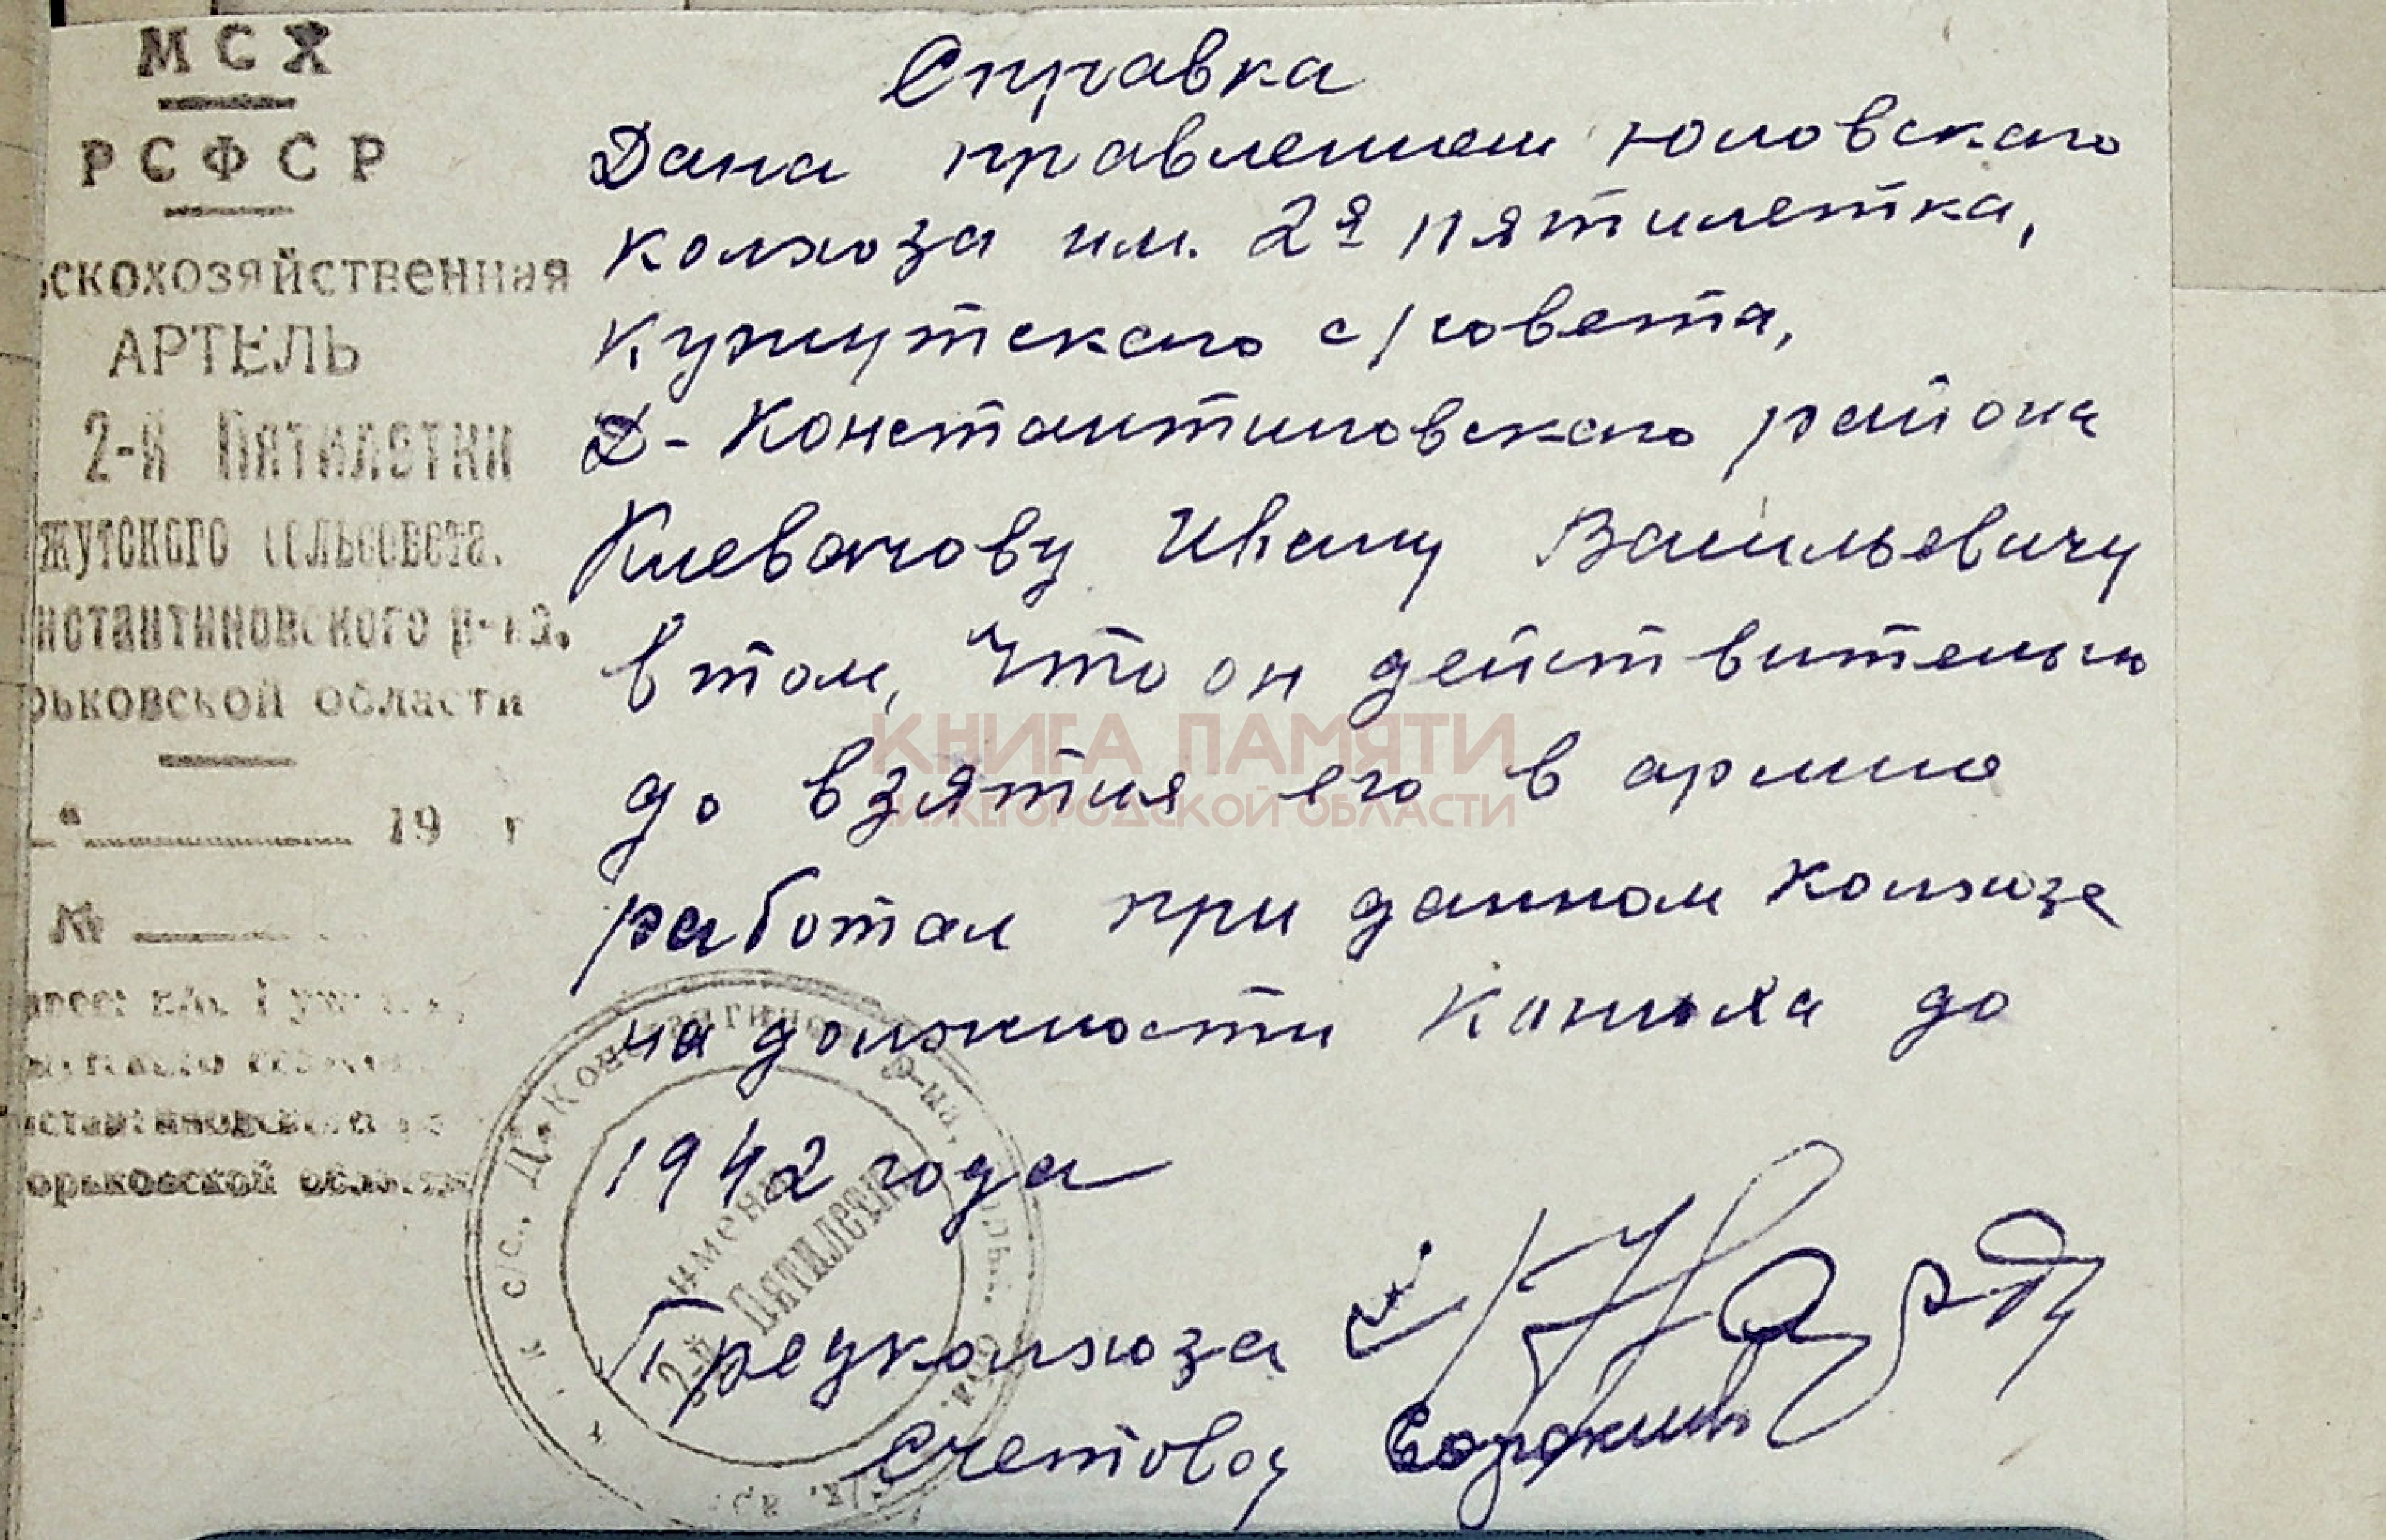 МСХ
РСФСР
ьскохозяйственная
АРТЕЛЬ
2-й Пятилетки
жутского сельсовета.
нстантиновского р-на.
рьковской области
19 г
№
орьковской области
Справка
Дана правлением Юловского
колхоза им. 2я пятилетка,
Кужутского с/совета,
Д-Константиновского района
Клевачову Ивану Васильевичу
в том, что он действительно
до взятия его в армию
работал при данном колхозе
на должности конюха до
1942 года
Предколхоза
Счетовод Сорокин
с/с., Д.-Константинов р-на,
имени
2-й Пятилетки
КНИГА ПАМЯТИ
НИЖЕГОРОДСКОЙ ОБЛАСТИ